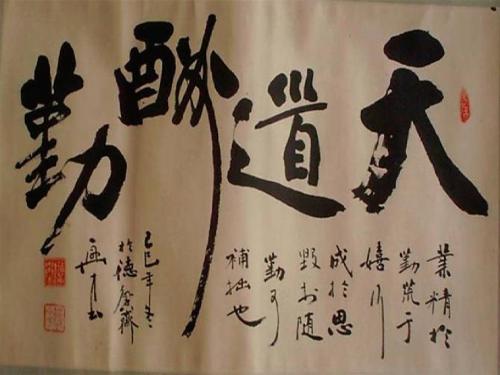 天道酬勤
業精於
勤荒于
嬉行
成於思
毀於随
勤可
補拙也
乙巳年冬
於德馨齋